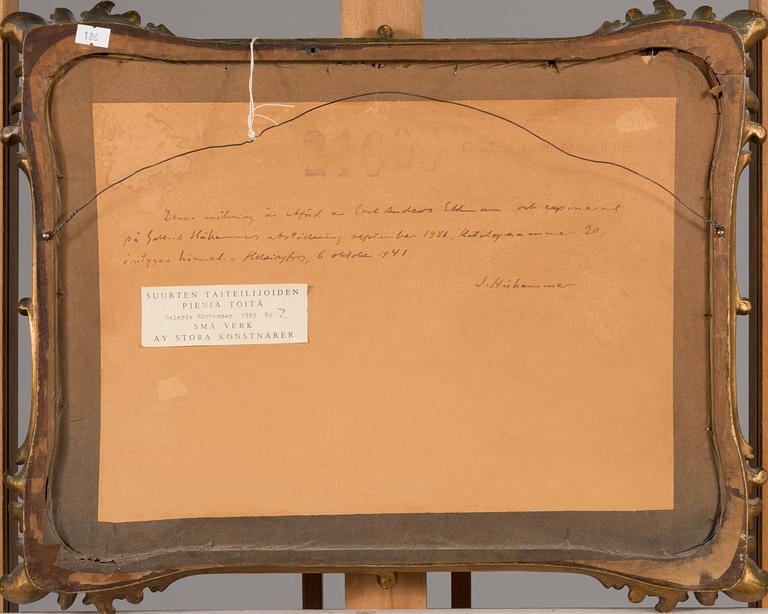 186
Denna målning är utförd av Carl Anders Ekman och exponerad
på Galerie Hörhammers utställning september 1941, Katalognummer 20,
intygas härmed. - Helsingfors, 6 oktober 1941
I. Hörhammer
SUURTEN TAITEILIJOIDEN
PIENIÄ TÖITÄ
Galerie Hörhammer 1985 No 7.
SMÅ VERK
AV STORA KONSTNÄRER